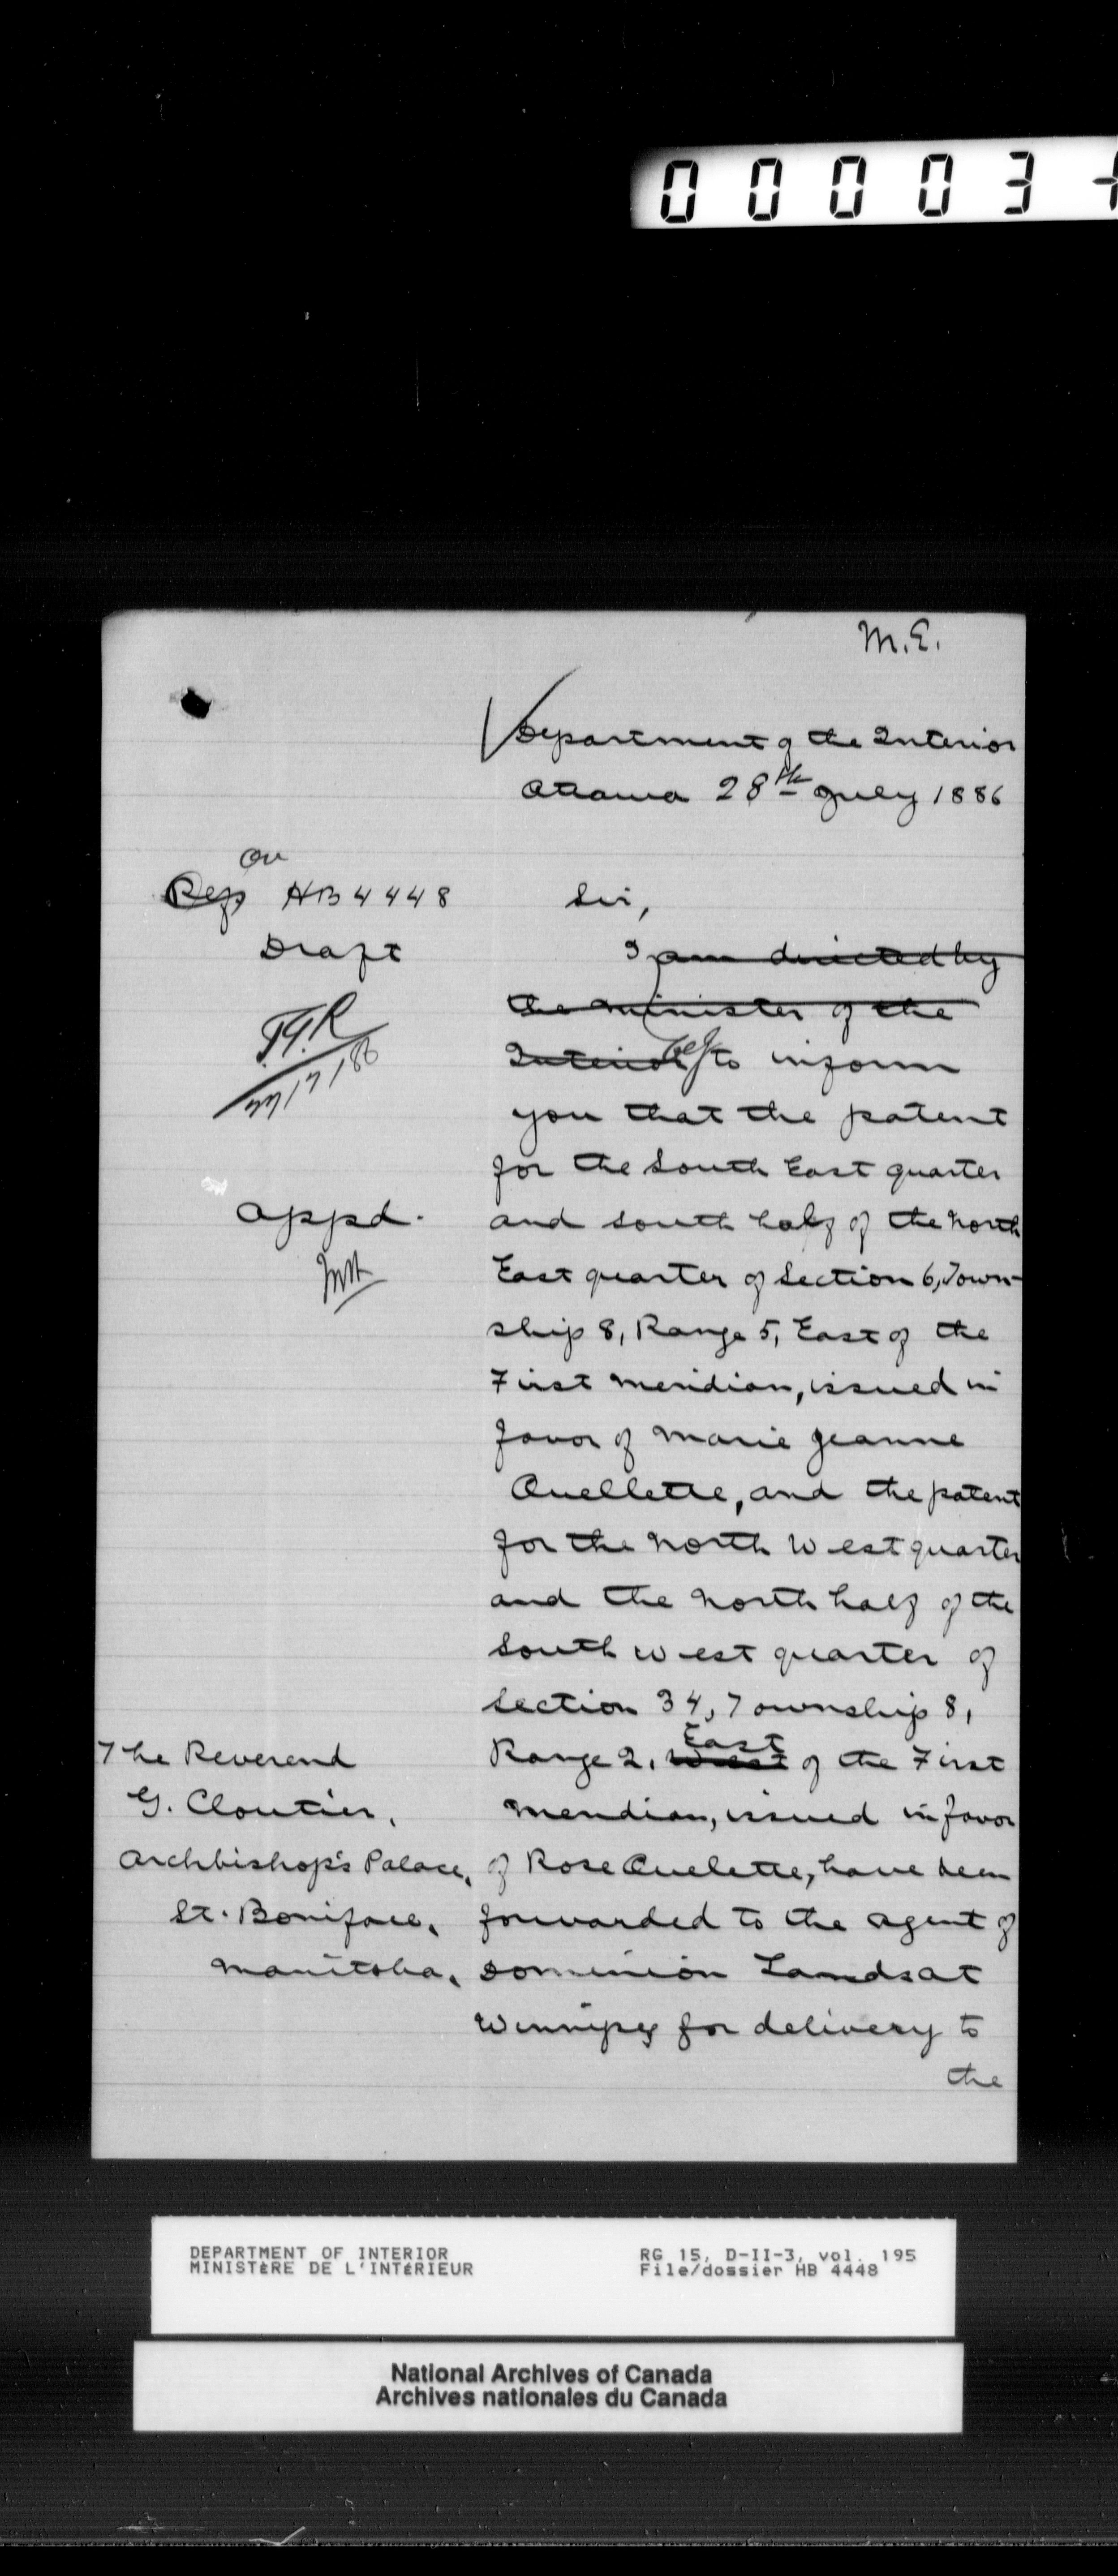 00003
M.E.
Department of the Interior
Ottawa 28th July 1886
on
Ref HB 4448
Draft
27/7/86
Appd.
Sir,
I am directed by
the Minister of the
Interior beg to inform
you that the patent
for the South East quarter
and south half of the North
East quarter of Section 6, Town-
ship 8, Range 5, East of the
First Meridian, issued in
favor of Marie Jeanne
Ouellette, and the patent
for the North West quarter
and the North half of the
South West quarter of
Section 34, Township 8,
East
Range 2, West of the First
Meridian, issued in favor
of Rose Ouelette, have been
forwarded to the Agent of
Dominion Lands at
Winnipeg for delivery to
the
The Reverend
G. Cloutier,
Archbishop's Palace,
St. Boniface,
Manitoba,
DEPARTMENT OF INTERIOR
MINISTÈRE DE L'INTÉRIEUR
RG 15, D-II-3, vol. 195
File/dossier HB 4448
National Archives of Canada
Archives nationales du Canada